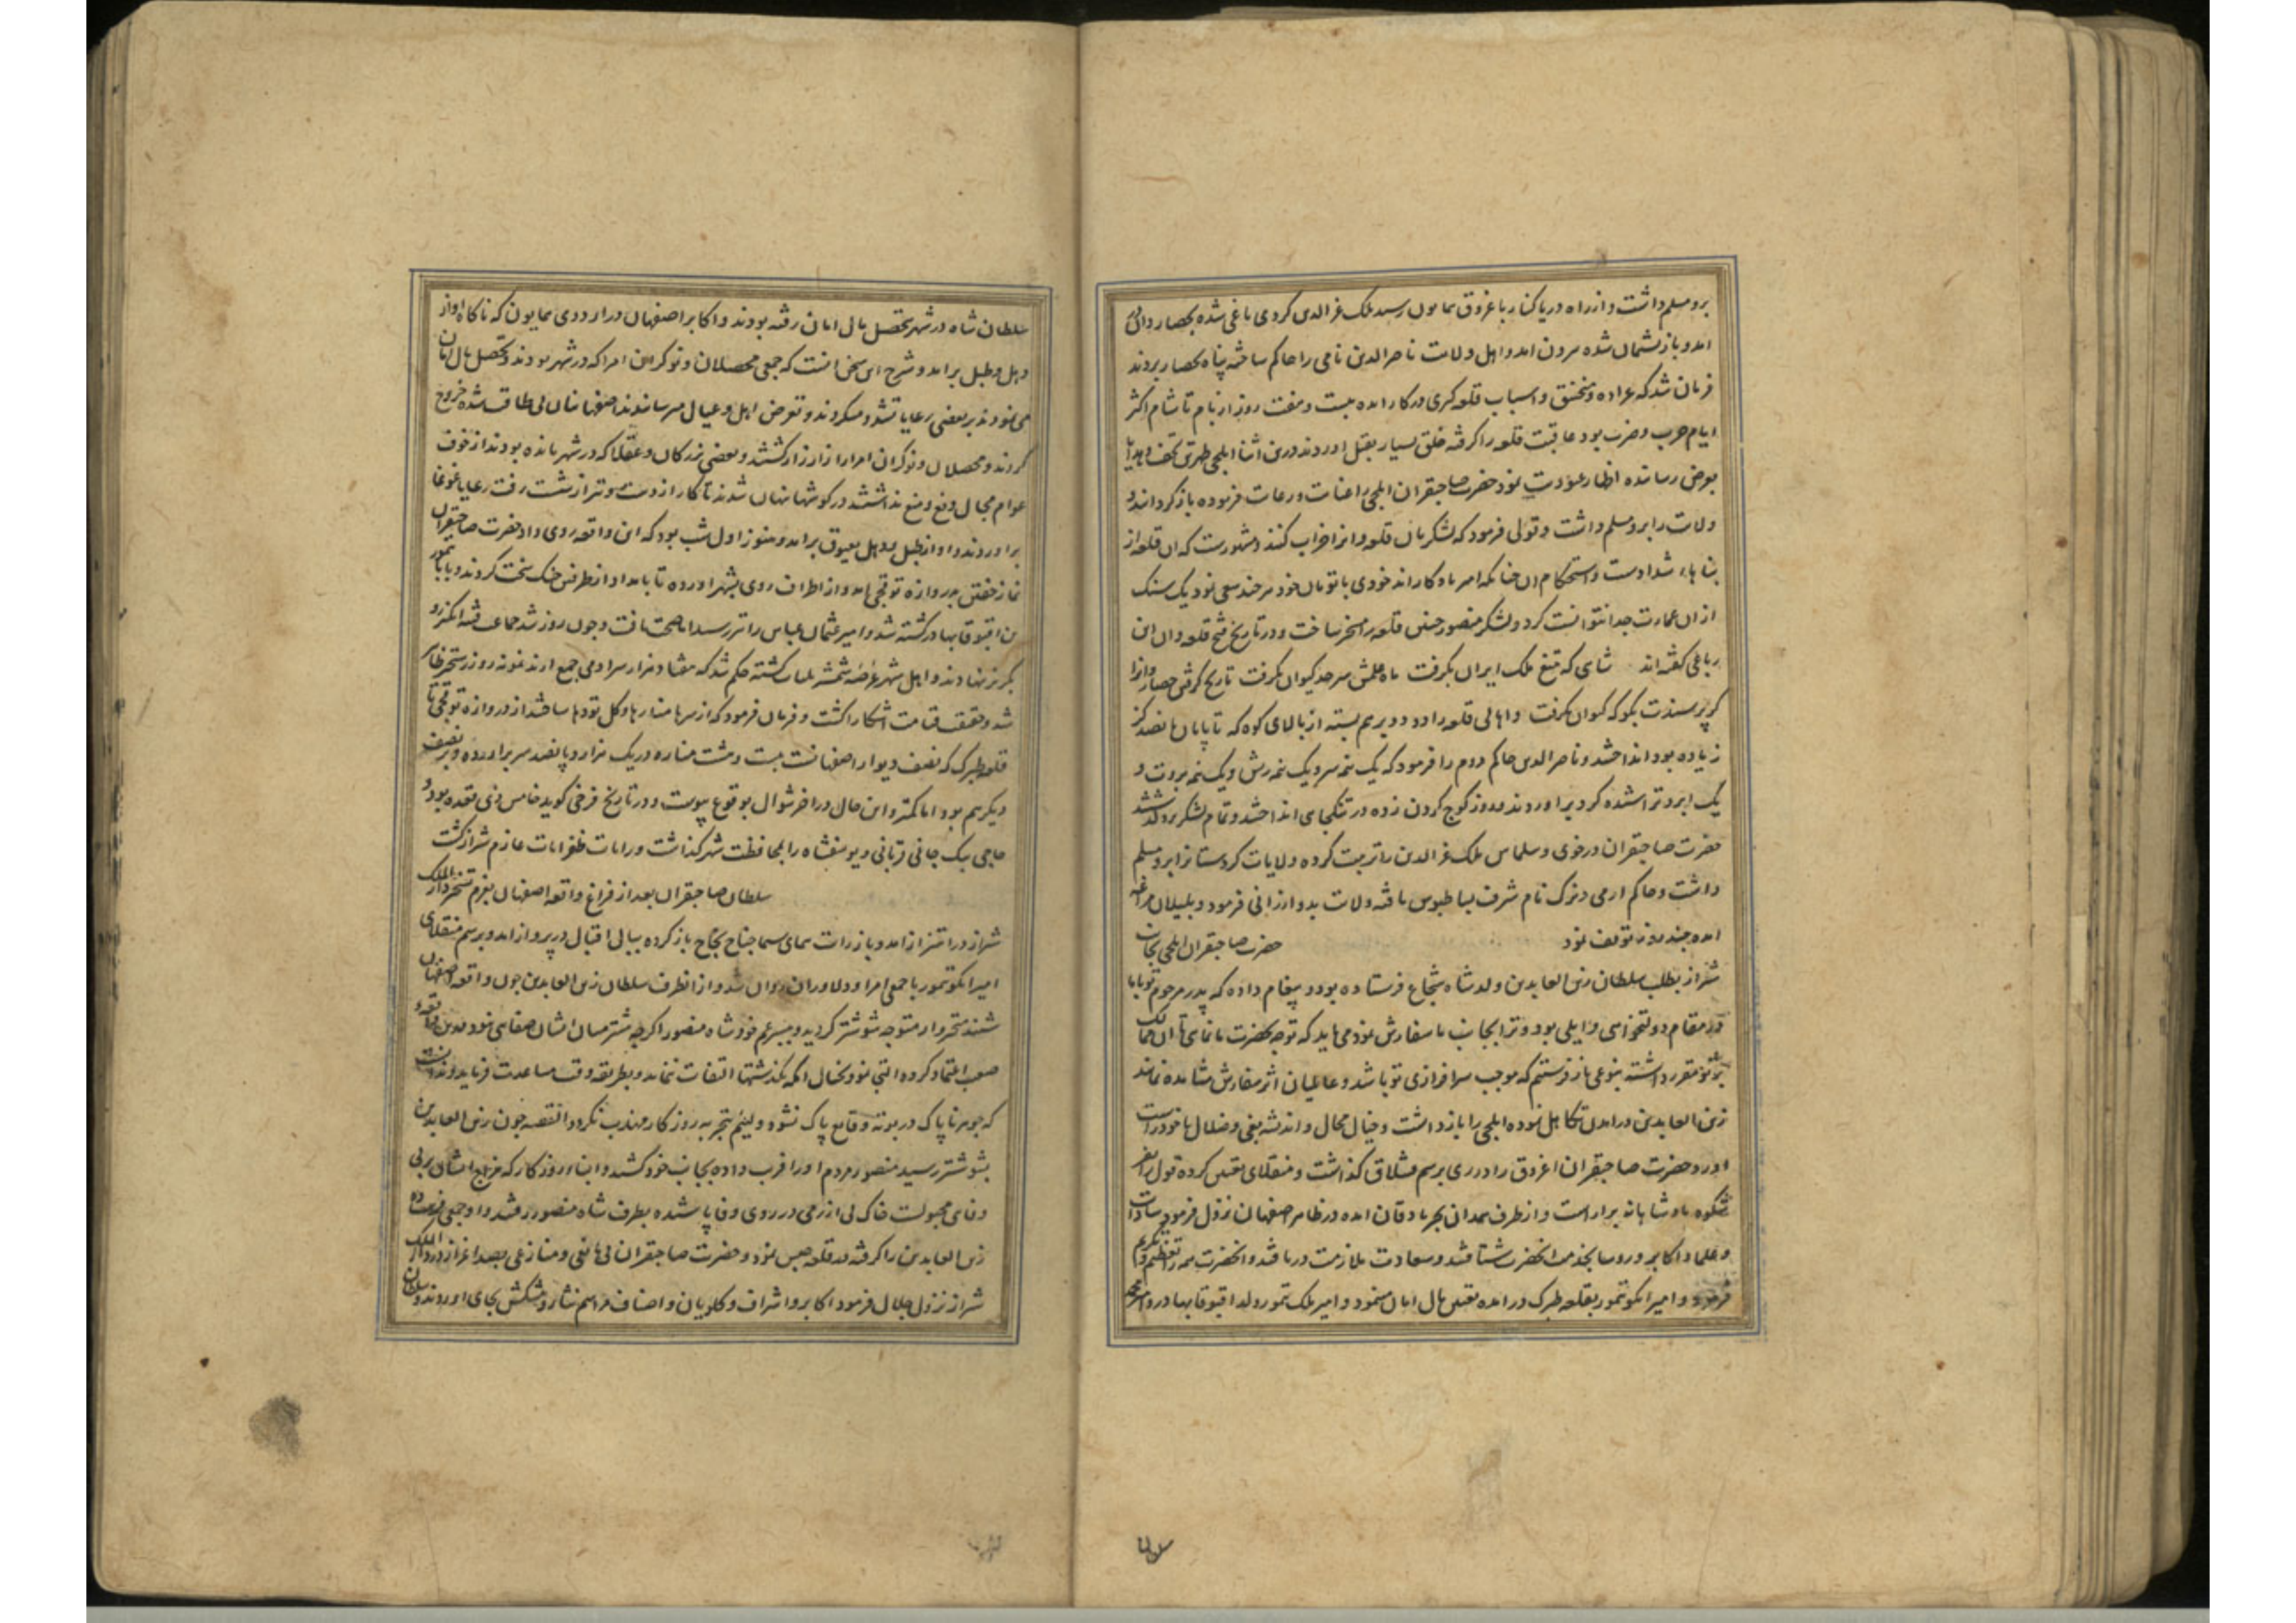 برو مسلم داشت و از راه دریا کنار با غروق همایون رسید ملک عز الدین کردی یاغی شده بحصار وان در
امد و باز پشیمان شده بیرون امد و اهل ولایت ناصر الدین نامی را حاکم ساخته پناه بحصار بردند
فرمان شد که عراده و منجنیق و اسباب قلعه کیری در کار امده بیست و هفت روز از بام تا شام اکثر
ایام حرب و ضرب بود عاقبت قلعه را کرفته خلقی بسیار بقتل اوردند درین اثنا ایلچی طهرتن تحف و هدایا
بعرض رسانده اظهار عبودیت نمود حضرت صاحبقران ایلچی را عنایت و رعایت فرموده باز کردانید و
ولایت را برو مسلم داشت و تولی فرمود که لشکریان قلعه وانرا خراب کنند و مشهورست که ان قلعه از
بناهاء شدادست و استحکام ان چنانکه امیر یادکار اندخودی با تومان خود هر چند سعی نمود یک سنک
از ان عمارت جدا نتوانست کرد و لشکر منصور چنین قلعه را مسخر ساخت و در تاریخ فتح قلعه وان این
رباعی کفته اند شاهی که بتیغ ملک ایران بکرفت ماه علمش سرحد کیوان بکرفت تاریخ کرفتن حصار وانرا
کر پرسندت بکو که کیوان بکرفت و اهالی قلعه را دو دو بر هم بسته از بالای کوه که تا پایان هانصد کز
زیاده بود انداختند و ناصر الدین حاکم دوم را فرمود که یک نیمه سر و یک نیمه ریش و یک نیمه بروت و
یک ابرو تراشیده کرد بر اوردند و روز کوچ کردن زده در تنکجایی انداختند و تمام لشکر برو کذشتند
حضرت صاحبقران در خوی و سلماس ملک عز الدین را تربیت کرده ولایات کردستانرا برو مسلم
داشت و حاکم ارمی و نرک نام شرف بساط بوس یافته ولایت بدو ارزانی فرمود و بلیلان مراغه
امده چند روز توقف نمود حضرت صاحبقران ایلچی بجانب
شیراز بطلب سلطان زین العابدین ولد شاه شجاع فرستاده بود و پیغام داده که پدر مرحوم تو با ما
در مقام دولتخواهی و ایلی بود و ترا بجانب ما سفارش نمود می باید که توجه بحضرت ما نمایی تا ان ممالک
بر تو مقرر داشته بنوعی باز فرستیم که موجب سرافرازی تو باشد و عالمیان اثر سفارش مشاهده نمایند
زین العابدین در امدن تکاهل نموده ایلچی را باز داشت و خیال محال و اندیشه بغی و ضلال با خود راست
اورد و حضرت صاحبقران اغروق را در ری برسم قشلاق کذاشت و منقلای تعیین کرده قول را بفر
شکوه پادشاهانه براراست و از طرف همدان بجربادقان امده در ظاهر اصفهان نزول فرمود و سادات
و علما و اکابر و روسا بخدمت انحضرت شتافتند و سعادت ملازمت دریافتند و انحضرت همه را تعظیم و تکریم
فرمود و امیر ایکو تیمور بقلعه طبرک در امده تعیین مال امان مینمود و امیر ملک تیمور ولد اقبوقا بهادر و امیر محمد
سلطان شاه در شهر بتحصیل مال امان رفته بودند و اکابر اصفهان در اردوی همایون که ناکاه اواز
دهل و طبل برامد و شرح این سخن انست که جمعی محصلان و نوکران این امرا که در شهر بودند و تحصیل مال امان
می نمودند بر بعضی رعایا تشدد میکردند و تعرض اهل و عیال میرسانیدند اصفهانیان بی طاقت شده خروج
کردند و محصلان و نوکران امرا را زار زار کشتند و بعضی بزرکان و عقلا که در شهر مانده بودند از خوف
عوام مجال دفع و منع نداشتند در کوشها پنهان شدند تا کار از دست و تیر از شست رفت رعایا غوغا
براوردند و اواز طبل و دهل بعیوق برامد و هنوز اول شب بود که این واقعه روی داد حضرت صاحبقران
نماز خفتن بدروازه توقچی امد و از اطراف روی بشهر اورده تا بامداد از طرفین جنک سخت کردند و بابا تیمور
بن اقبوقا بهادر کشته شد و امیر عثمان عباس را تیر رسید اما صحت یافت و چون روز شد جماعت فتنه انکیز رو
بکریز نهادند و اهل شهر عرضه شمشیر بلیات کشته حکم شد که هفتاد هزار سر ادمی جمع ارند نمونه روز رستخیز ظاهر
شد و حقیقت قیامت اشکارا کشت و فرمان فرمود که از سرها منارها و کل تودها ساختند از دروازه توقچی تا
قلعه طبرک که نصف دیوار اصفهانست بیست و هشت مناره در یک هزار و پانصد سر براورده و بر نصف
دیکر هم بود اما کمتر و این حال در اخر شوال بوقوع پیوست و در تاریخ فرخی کوید خامس ذی قعده بود و
حاجی بیک جانی قربانی و یوسفشاه را بمحافظت شهر کذاشت و رایات ظفر ایات عازم شیراز کشت
سلطان صاحبقران بعد از فراغ واقعه اصفهان بعزم تسخیر دار الملک
شیراز در اهتزاز امد و باز رایت همای سیما جناح نجاح باز کرده ببال اقبال در پرواز امد و برسم منقلای
امیر ایکو تیمور با جمعی امرا و دلاوران روان شد و از انطرف سلطان زین العابدین چون واقعه اصفهان
شنید متحیروار متوجه شوشتر کردید و به پسر عم خود شاه منصور اکرچه پیشتر میان ایشان صفایی نبود درین واقعه
صعب اعتماد کرده التجا نمود بخیال انکه بکذشتها التفات ننماید و بطریقه وقت مساعدت فرماید و ندانست
که جوهر ناپاک در بوته وقایع پاک نشود و لئیم بتجربه روزکار مهذب نکردد القصه چون زین العابدین
بشوشتر رسید منصور مردم او را فریب داده بجانب خود کشید و ابناء روزکار که مزاج ایشان بر بی
وفایی مجبولست خاک بی ازرمی در روی وفا پاشیده بطرف شاه منصور رفتند و او جمعی فرستاده
زین العابدین را کرفته در قلعه حبس نمود و حضرت صاحبقران بی مانعی و منازعی بصد اعزاز در دار الملک
شیراز نزول جلال فرمود اکابر و اشراف و کلویان و اصناف مراسم نثار و پیشکش بجای اوردند و سلطان